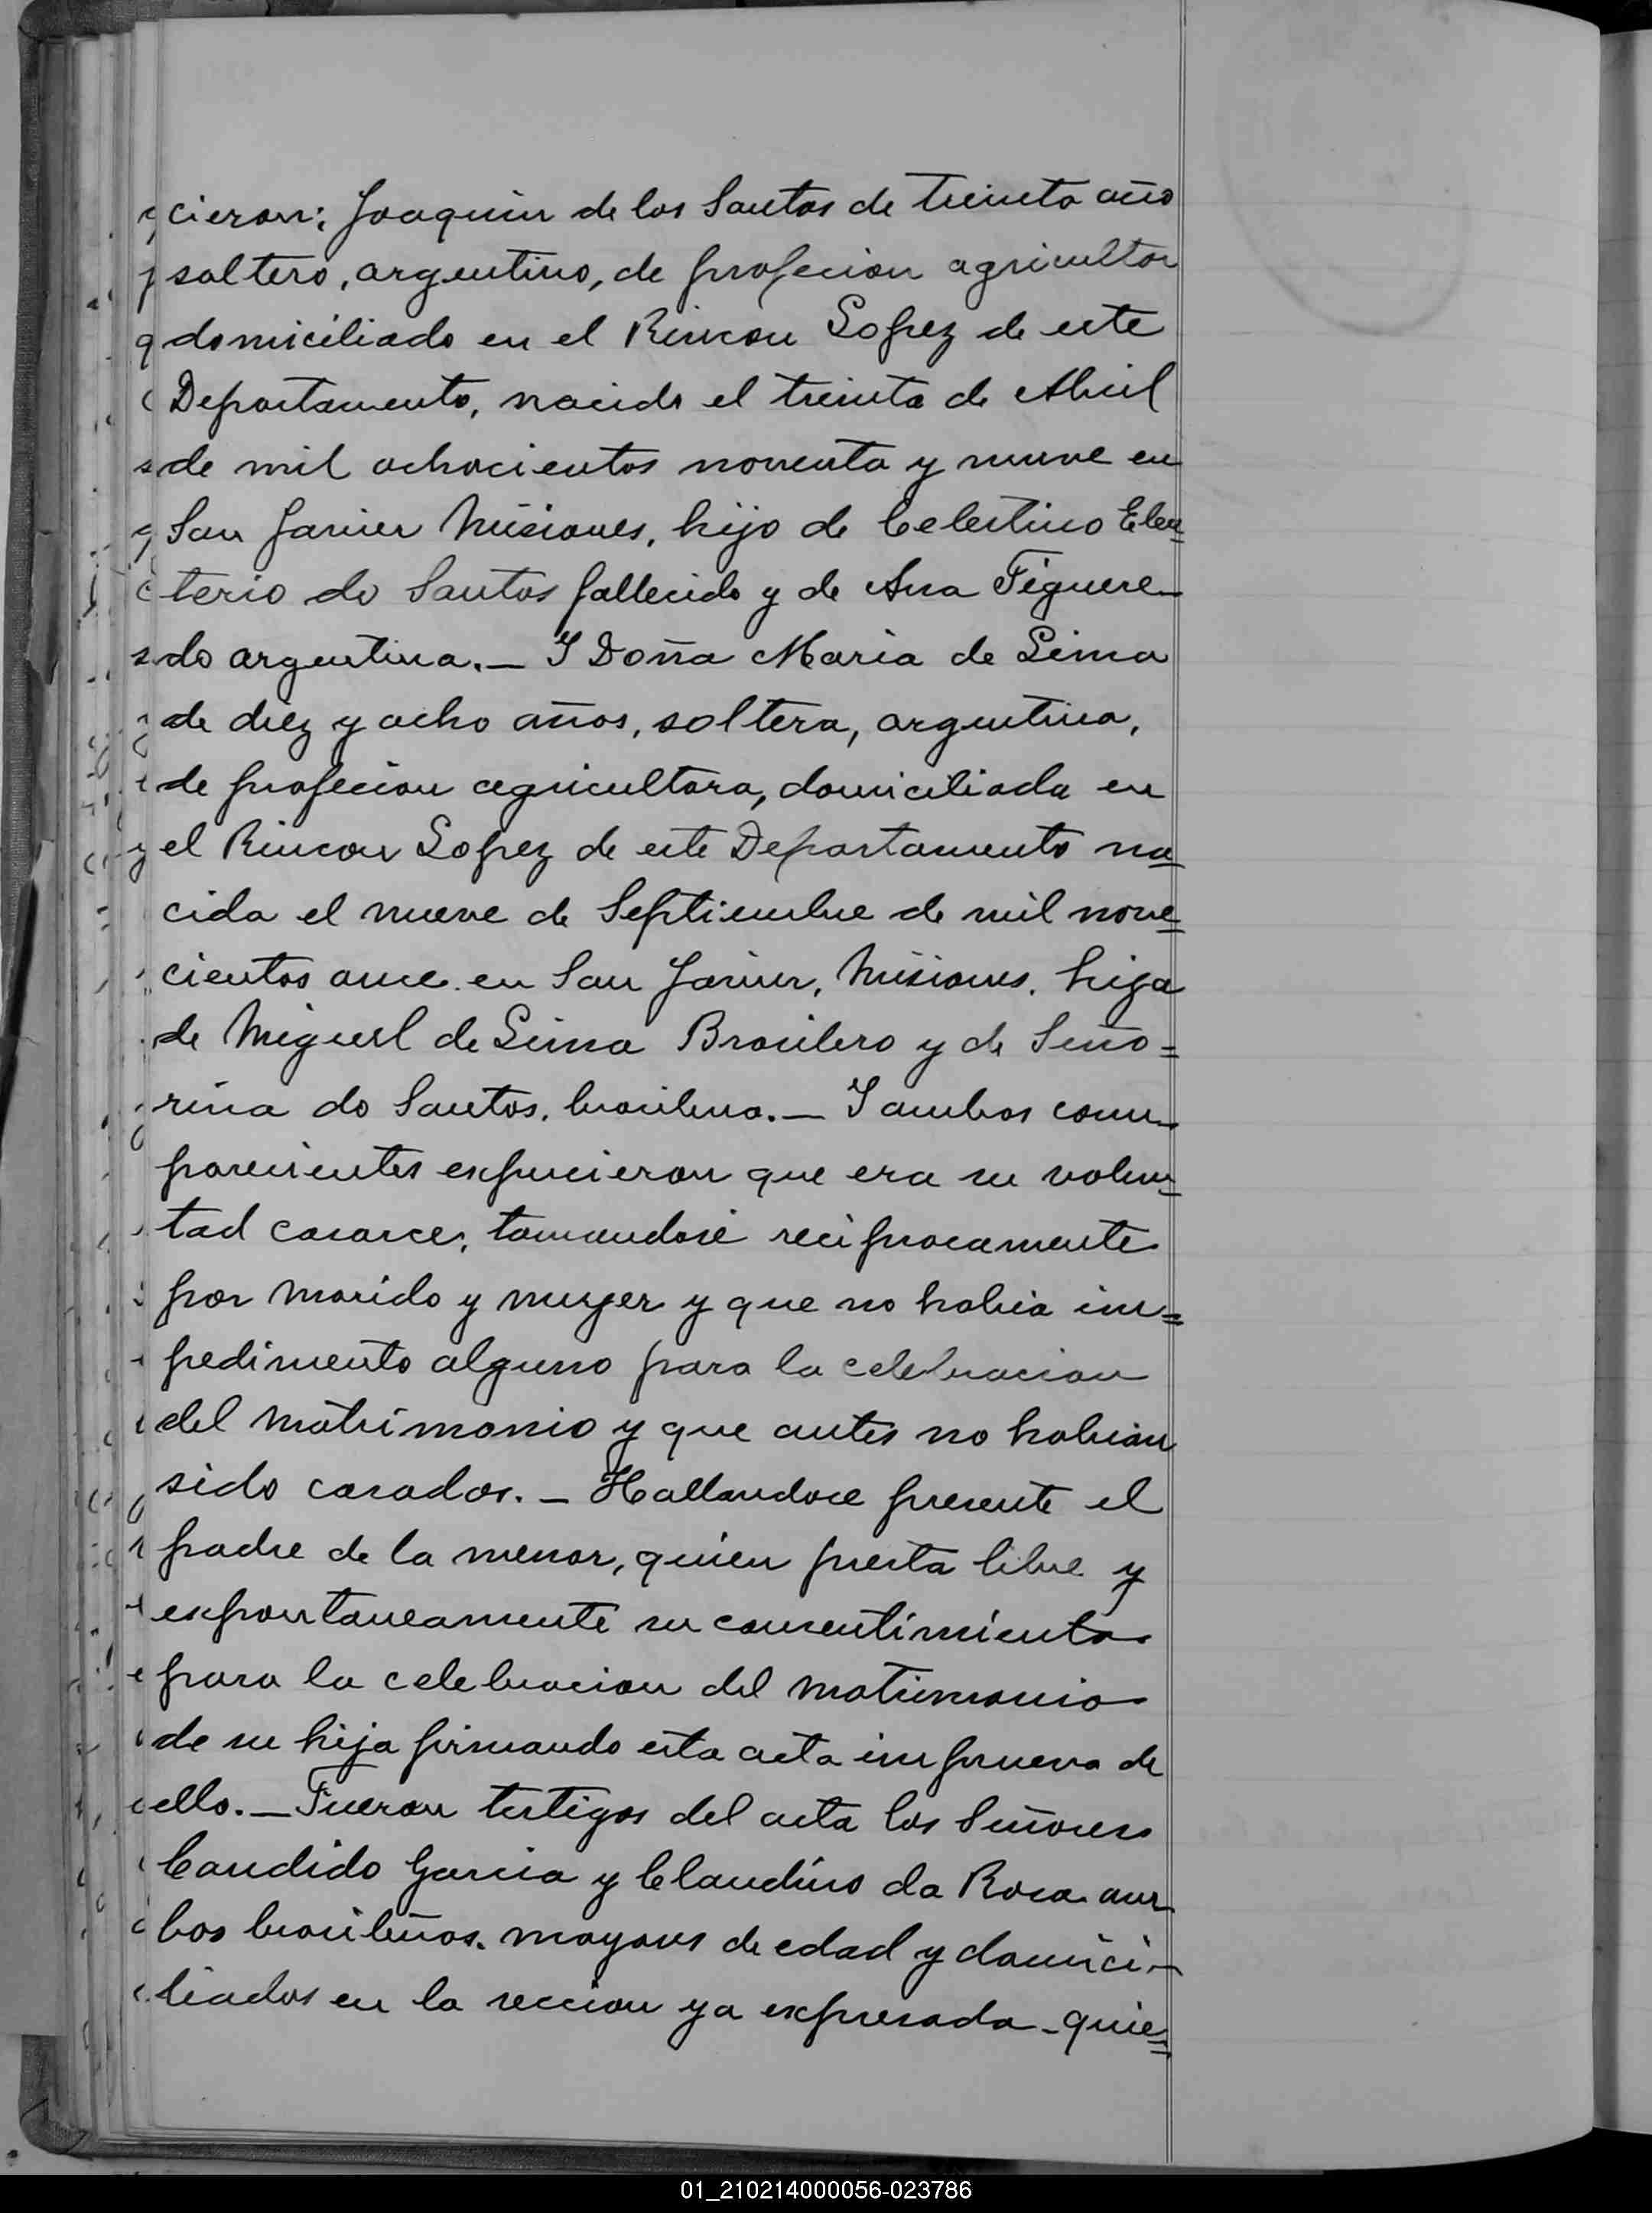 cieron; Joaquin de los Santos de treinta año
soltero, argentino, de profecion agricultor
domiciliado en el Rincon Lopez de este
Departamento, nacido el treinta de Abril
de mil ochocientos noventa y nueve en
San Javier Misiones, hijo de Celestino Eleu=
terio do Santos fallecido y de Ana Figuere-
do argentina.- I Doña Maria de Lima
de diez y ocho años, soltera, argentina,
de profecion agricultora, domiciliada en
el Rincon Lopez de este Departamento na=
cida el nueve de Septiembre de mil nove=
cientos once en San Javier, Misiones, hija
de Miguel de Lima Brasilero y de Seño=
rina do Santos, brasilera.- I ambos com-
parecientes expucieron que era su volun=
tad casarce, tomandose reciprocamente
por marido y muger y que no habia im=
pedimento alguno para la celebracion
del matrimonio y que antes no habian
sido casados.- Hallandoce presente el
padre de la menor, quien presta libre y
expontaneamente su consentimiento
para la celebracion del matrimonio
de su hija firmando esta acta im prueva de
ello.- Fueron testigos del acta los Señores
Candido Garcia y Claudino da Rosa am-
bos brasileños, mayores de edad y domici-
liados en la seccion ya expresada - quie=
01_210214000056-023786